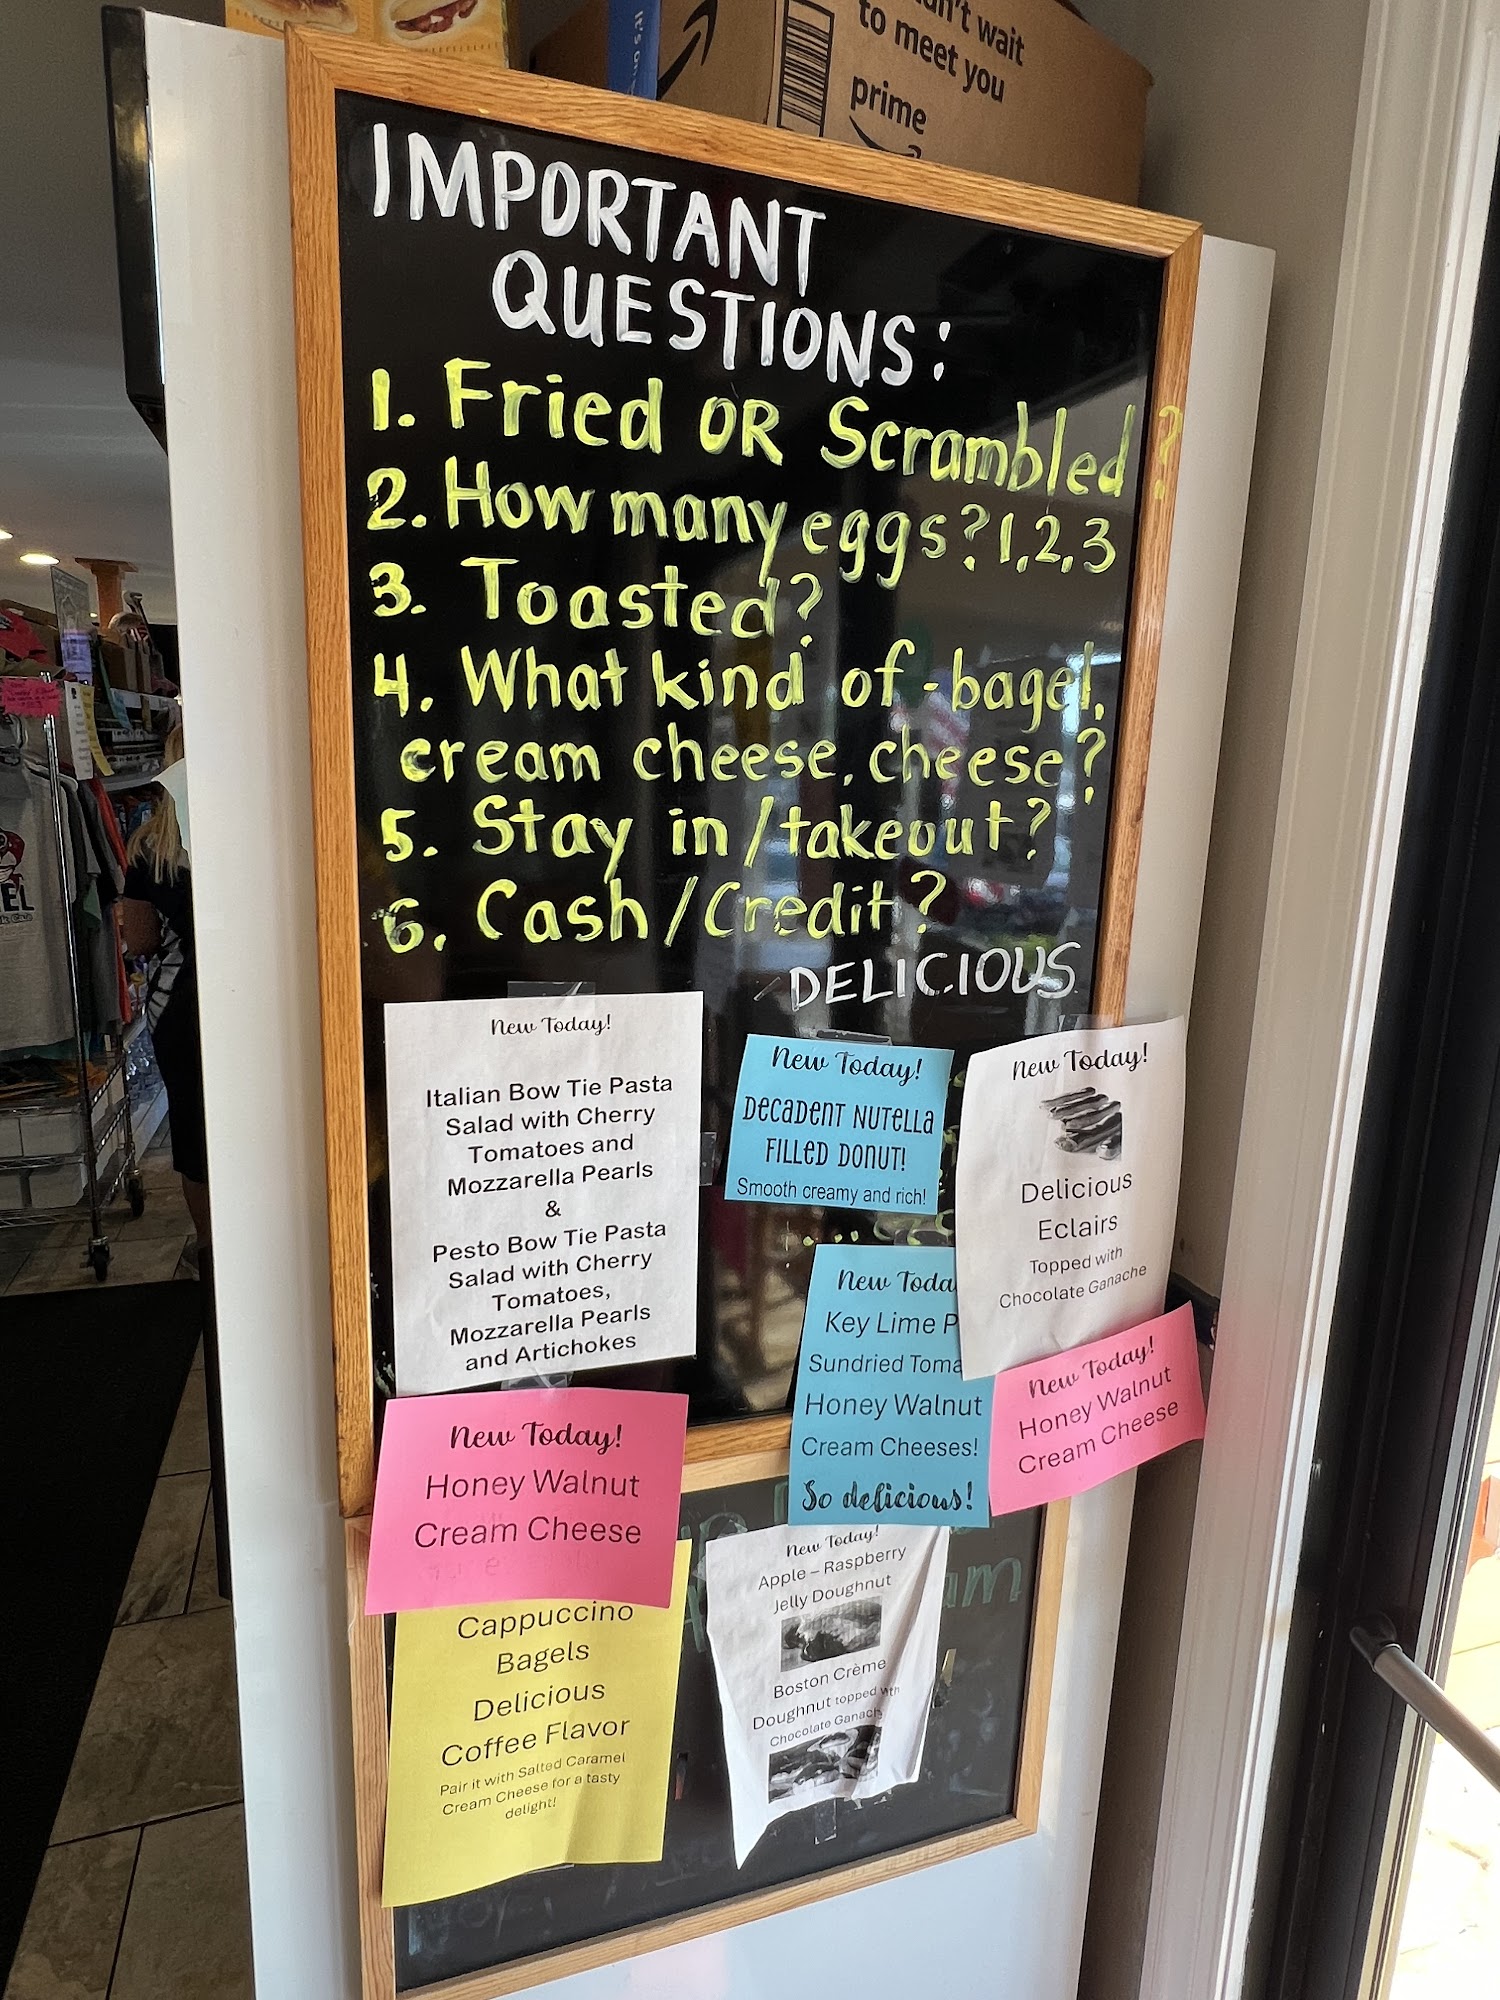 to meet you
prime
IMPORTANT
QUESTIONS:
1. Fried OR Scrambled?
2. How many eggs? 1,2,3
3. Toasted?
4. What kind of - bagel,
cream cheese, cheese?
5. Stay in/takeout?
6. Cash/Credit?
DELICIOUS
New Today!
Italian Bow Tie Pasta
Salad with Cherry
Tomatoes and
Mozzarella Pearls
&
Pesto Bow Tie Pasta
Salad with Cherry
Tomatoes,
Mozzarella Pearls
and Artichokes
New Today!
Decadent Nutella
Filled Donut!
Smooth creamy and rich!
New Today!
Delicious
Eclairs
Topped with
Chocolate Ganache
New Toda
Key Lime P
Sundried Toma
Honey Walnut
Cream Cheeses!
So delicious!
New Today!
Honey Walnut
Cream Cheese
New Today!
Honey Walnut
Cream Cheese
Cappuccino
Bagels
Delicious
Coffee Flavor
Pair it with Salted Caramel
Cream Cheese for a tasty
delight!
New Today!
Apple – Raspberry
Jelly Doughnut
Boston Crème
Doughnut topped with
Chocolate Ganach